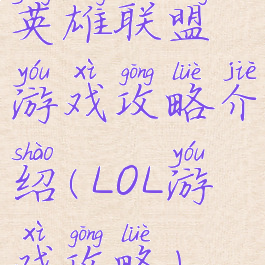 英雄联盟
yóu xì gōng lüè jiè
游戏攻略介
shào yóu
绍(LOL游
xì gōng lüè
戏攻略)